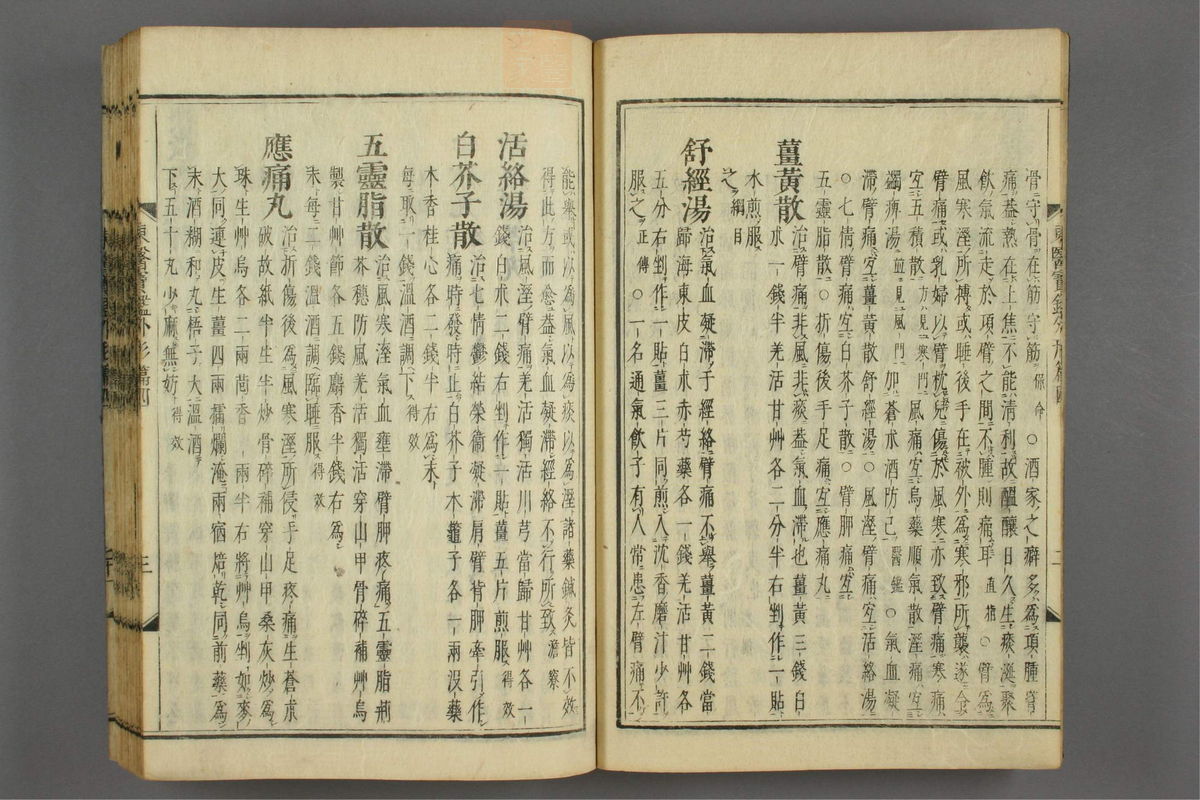 骨守骨在筋守筋保命○酒家之癖多為項腫臂
痛盖熱在上焦不能清利故醞釀日久生痰涎聚
飲氣流走於項臂之間不腫則痛耳直指○臂為
風寒溼所搏或睡後手在被外為寒邪所襲遂令
臂痛或乳婦以臂枕兒傷於風寒亦致臂痛寒痛
宜五積散方見寒門風痛宜烏藥順氣散溼痛宜
蠲痺湯並見風門加蒼朮酒防己醫鑑○氣血凝
滯臂痛宜薑黃散舒經湯○風溼臂痛宜活絡湯
○七情臂痛宜白芥子散○臂胛痛宜
五靈脂散○折傷後手足痛宜應痛丸
薑黃散治臂痛非風非痰盖氣血滯也薑黃三錢白
朮一錢半羌活甘艸各二分半右剉作一貼
水煎服
之綱目
舒經湯治氣血凝滯于經絡臂痛不擧薑黃二錢當
歸海東皮白朮赤芍藥各一錢羌活甘艸各
五分右剉作一貼薑三片同煎入沈香磨汁少許
服之正傳○一名通氣飮子有人常患左臂痛不
東醫寶鑑外形篇四
二
能擧或以為風以為痰以為溼諸藥鍼灸皆不效
得此方而愈盖氣血凝滯經絡不行所致澹寮
活絡湯治風溼臂痛羌活獨活川芎當歸甘艸各一
錢白朮二錢右剉作一貼薑五片煎服得效
白芥子散治七情鬱結榮衞凝滯肩臂背胛牽引作
痛時發時止白芥子木鼈子各一兩沒藥
木香桂心各二錢半右為末
每取一錢溫酒調下得效
五靈脂散治風寒溼氣血壅滯臂胛疼痛五靈脂荊
芥穗防風羌活獨活穿山甲骨碎補艸烏
製甘艸節各五錢麝香半錢右為
末每二錢溫酒調臨睡服得效
應痛丸治折傷後為風寒溼所侵手足疼痛生蒼朮
破故紙半生半炒骨碎補穿山甲桑灰炒為
珠生艸烏各二兩茴香一兩半右將艸烏剉如麥
大同連皮生薑四兩擂爛淹兩宿焙乾同前藥為
末酒糊和丸梧子大溫酒
下五十丸少麻無妨得效
東醫寶鑑外形篇四
三